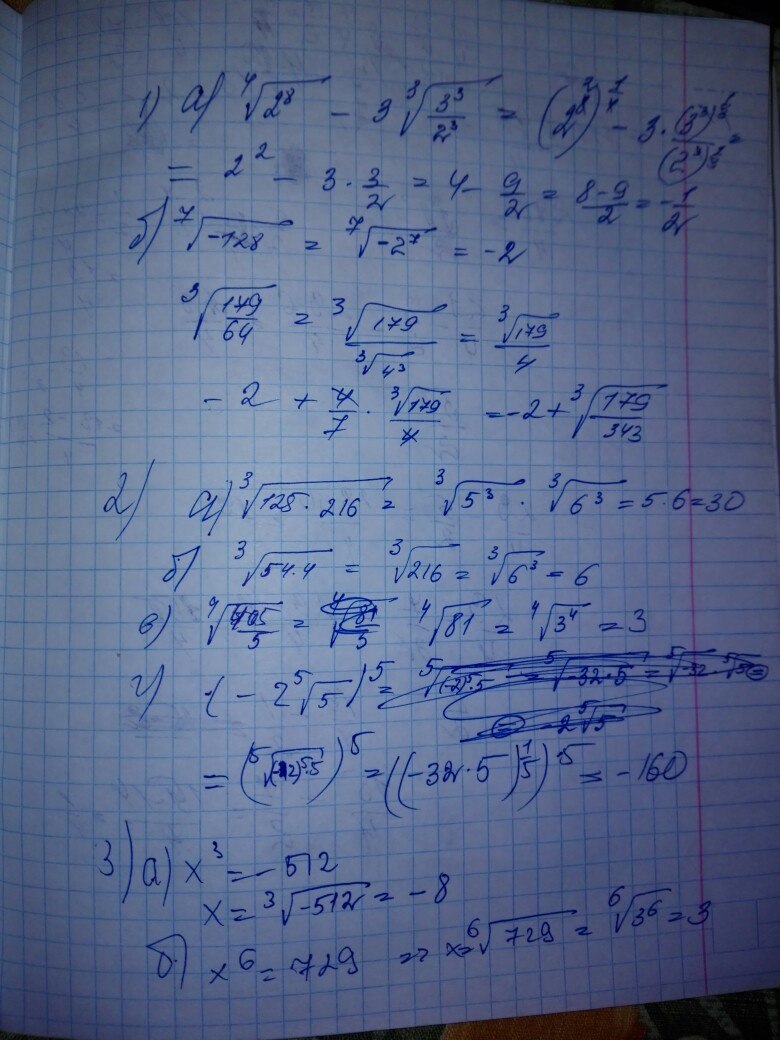 1) а) ⁴√2⁸ − 3 ³√(3³/2³) = (2⁸)^(1/4) − 3 · (3³)^(1/3)/(2³)^(1/3) =
= 2² − 3 · 3/2 = 4 − 9/2 = (8−9)/2 = −1/2
б) ⁷√−128 = ⁷√−2⁷ = −2
³√(179/64) = ³√179/³√4³ = ³√179/4
− 2 + 4/7 · ³√179/4 = −2 + ³√(179/343)
2) а) ³√125·216 = ³√5³ · ³√6³ = 5·6=30
б) ³√54·4 = ³√216 = ³√6³ = 6
в) ⁴√(405/5) = ⁴√81 = ⁴√3⁴ = 3
г) (−2 ⁵√5)⁵ =
= (⁵√(−2)⁵·5)⁵ = ((−32·5)^(1/5))·⁵ = −160
3) а) x³ = −512
x = ³√−512 = −8
б) x⁶ = 729 => x=⁶√729 = ⁶√3⁶ = 3